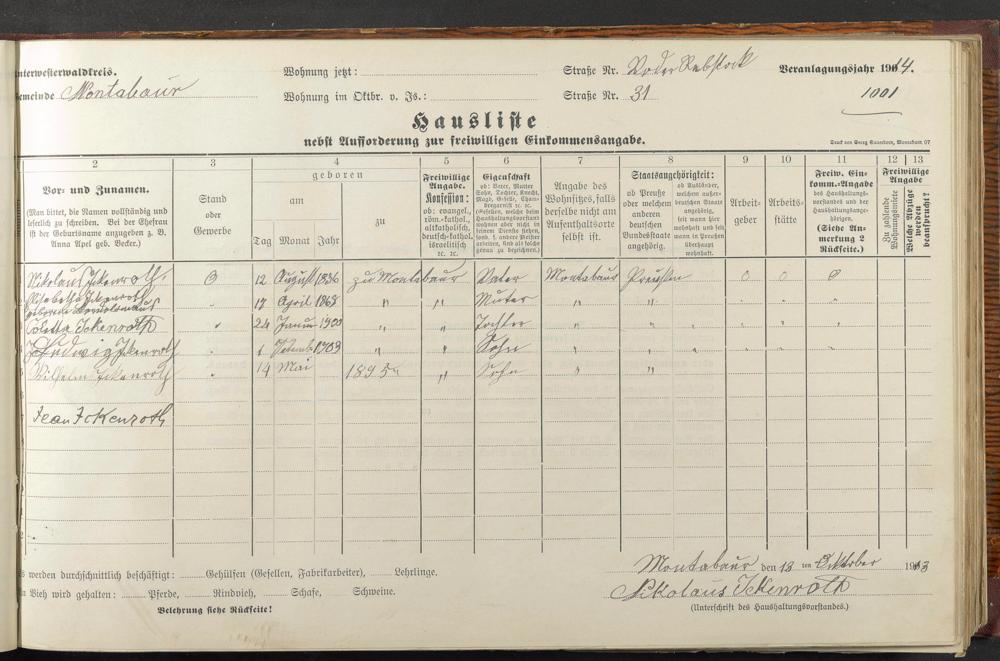 nterwesterwaldkreis. Wohnung jetzt: Straße Nr. Vorder Rebstock Veranlagungsjahr 1914.
emeinde Montabaur Wohnung im Oktbr. v. Js.: Straße Nr. 31 1001
Hausliste
nebst Aufforderung zur freiwilligen Einkommensangabe.
2 3 4 5 6 7 8 9 10 11 12 13
Vor- und Zunamen.
(Man bittet, die Namen vollständig und
leserlich zu schreiben. Bei der Ehefrau
ist der Geburtsname anzugeben z. B.
Anna Apel geb. Becker.)
Stand
oder
Gewerbe
geboren
am
Tag Monat Jahr
zu
Freiwillige
Angabe.
Konfession:
ob: evangel.,
röm.-kathol.,
altkatholisch,
deutsch-kathol.
israelitisch
ec. ec.
Eigenschaft
ob: Vater, Mutter
Sohn, Tochter, Knecht,
Magd, Geselle, Cham-
bregarnist ec. ec.
(Gesellen, welche beim
Haushaltungsvorstand
wohnen aber nicht in
seinem Dienste stehen,
sond. f. andere Meister
arbeiten, sind als solche
genau zu bezeichnen.)
Angabe des
Wohnsitzes, falls
derselbe nicht am
Aufenthaltsorte
selbst ist.
Staatsangehörigkeit:
ob Preuße
oder welchem
anderen
deutschen
Bundesstaate
angehörig.
ob Ausländer,
welchem außer-
deutschen Staate
angehörig,
seit wann hier
wohnhaft und seit
wann in Preußen
überhaupt
wohnhaft.
Arbeit-
geber
Arbeits-
stätte
Freiw. Ein-
komm.-Angabe
des Haushaltungs-
vorstandes und der
Haushaltungsange-
hörigen.
(Siehe An-
merkung 2
Rückseite.)
Freiwillige
Angabe
Zu zahlende
Wohnungsmiete
Welche Abzüge
werden
beansprucht?
Nikolaus Ickenroth 12 August 1856 zu Montabaur Vater Montabaur Preußen 0 0
Ickenroth " 17 April 1868 " " Mutter " "
geborene
Coletta Ickenroth " 24 Januar 1900 " " Tochter " " " " " "
Ludwig Ickenroth " 1 1903 " " Sohn " " " " " "
Wilhelm Ickenroth " 14 Mai 1895 " " Sohn " "
Jean Ickenroth
s werden durchschnittlich beschäftigt: Gehülfen (Gesellen, Fabrikarbeiter), Lehrlinge.
n Vieh wird gehalten: Pferde, Rindvieh, Schafe, Schweine.
Belehrung siehe Rückseite!
Montabaur den 13 ten Oktober 1913
Nikolaus Ickenroth
(Unterschrift des Haushaltungsvorstandes.)